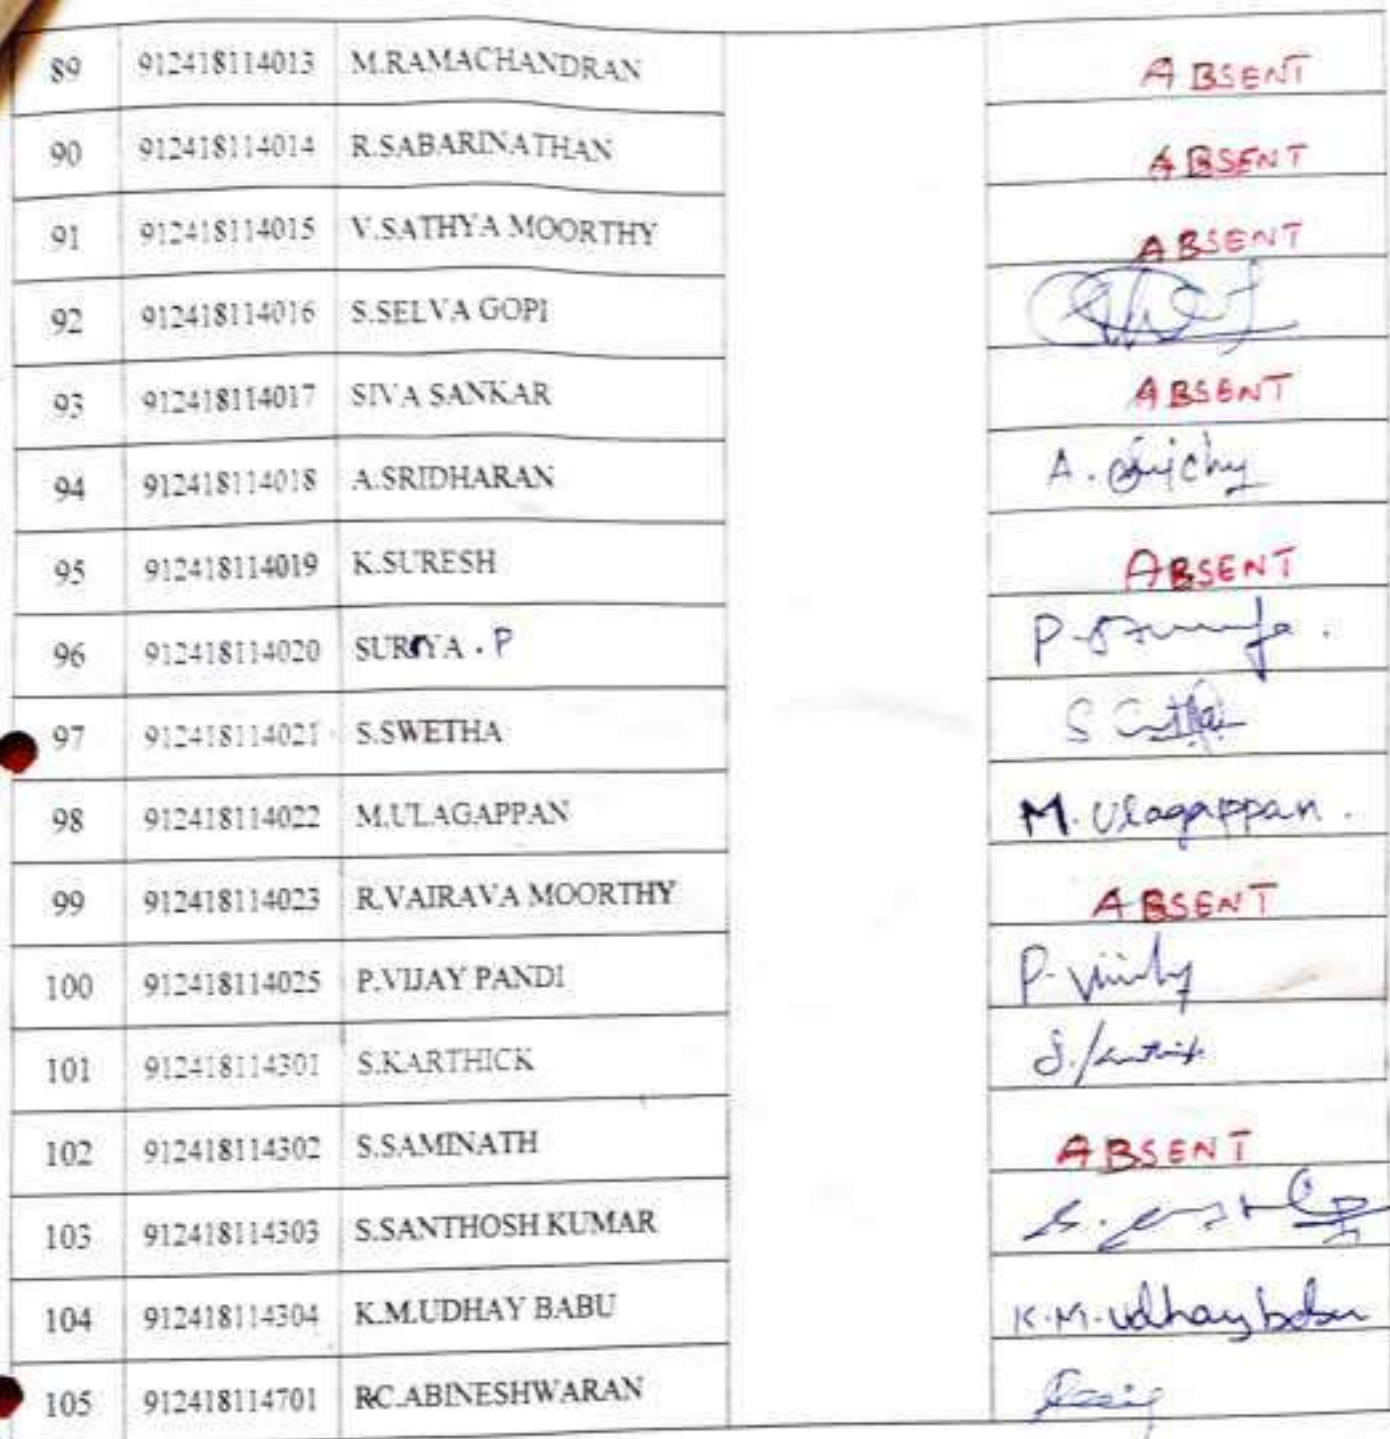 89 912418114013 M.RAMACHANDRAN ABSENT
90 912418114014 R.SABARINATHAN ABSENT
91 912418114015 V.SATHYA MOORTHY ABSENT
92 912418114016 S.SELVA GOPI
93 912418114017 SIVA SANKAR ABSENT
94 912418114018 A.SRIDHARAN A.
95 912418114019 K.SURESH ABSENT
96 912418114020 SURIYA . P P.
97 912418114021 S.SWETHA S
98 912418114022 M.ULAGAPPAN M. Ulagappan .
99 912418114023 R.VAIRAVA MOORTHY ABSENT
100 912418114025 P.VIJAY PANDI P.
101 912418114301 S.KARTHICK S.
102 912418114302 S.SAMINATH ABSENT
103 912418114303 S.SANTHOSH KUMAR S.
104 912418114304 K.M.UDHAY BABU K.M.Udhay babu
105 912418114701 RC.ABINESHWARAN